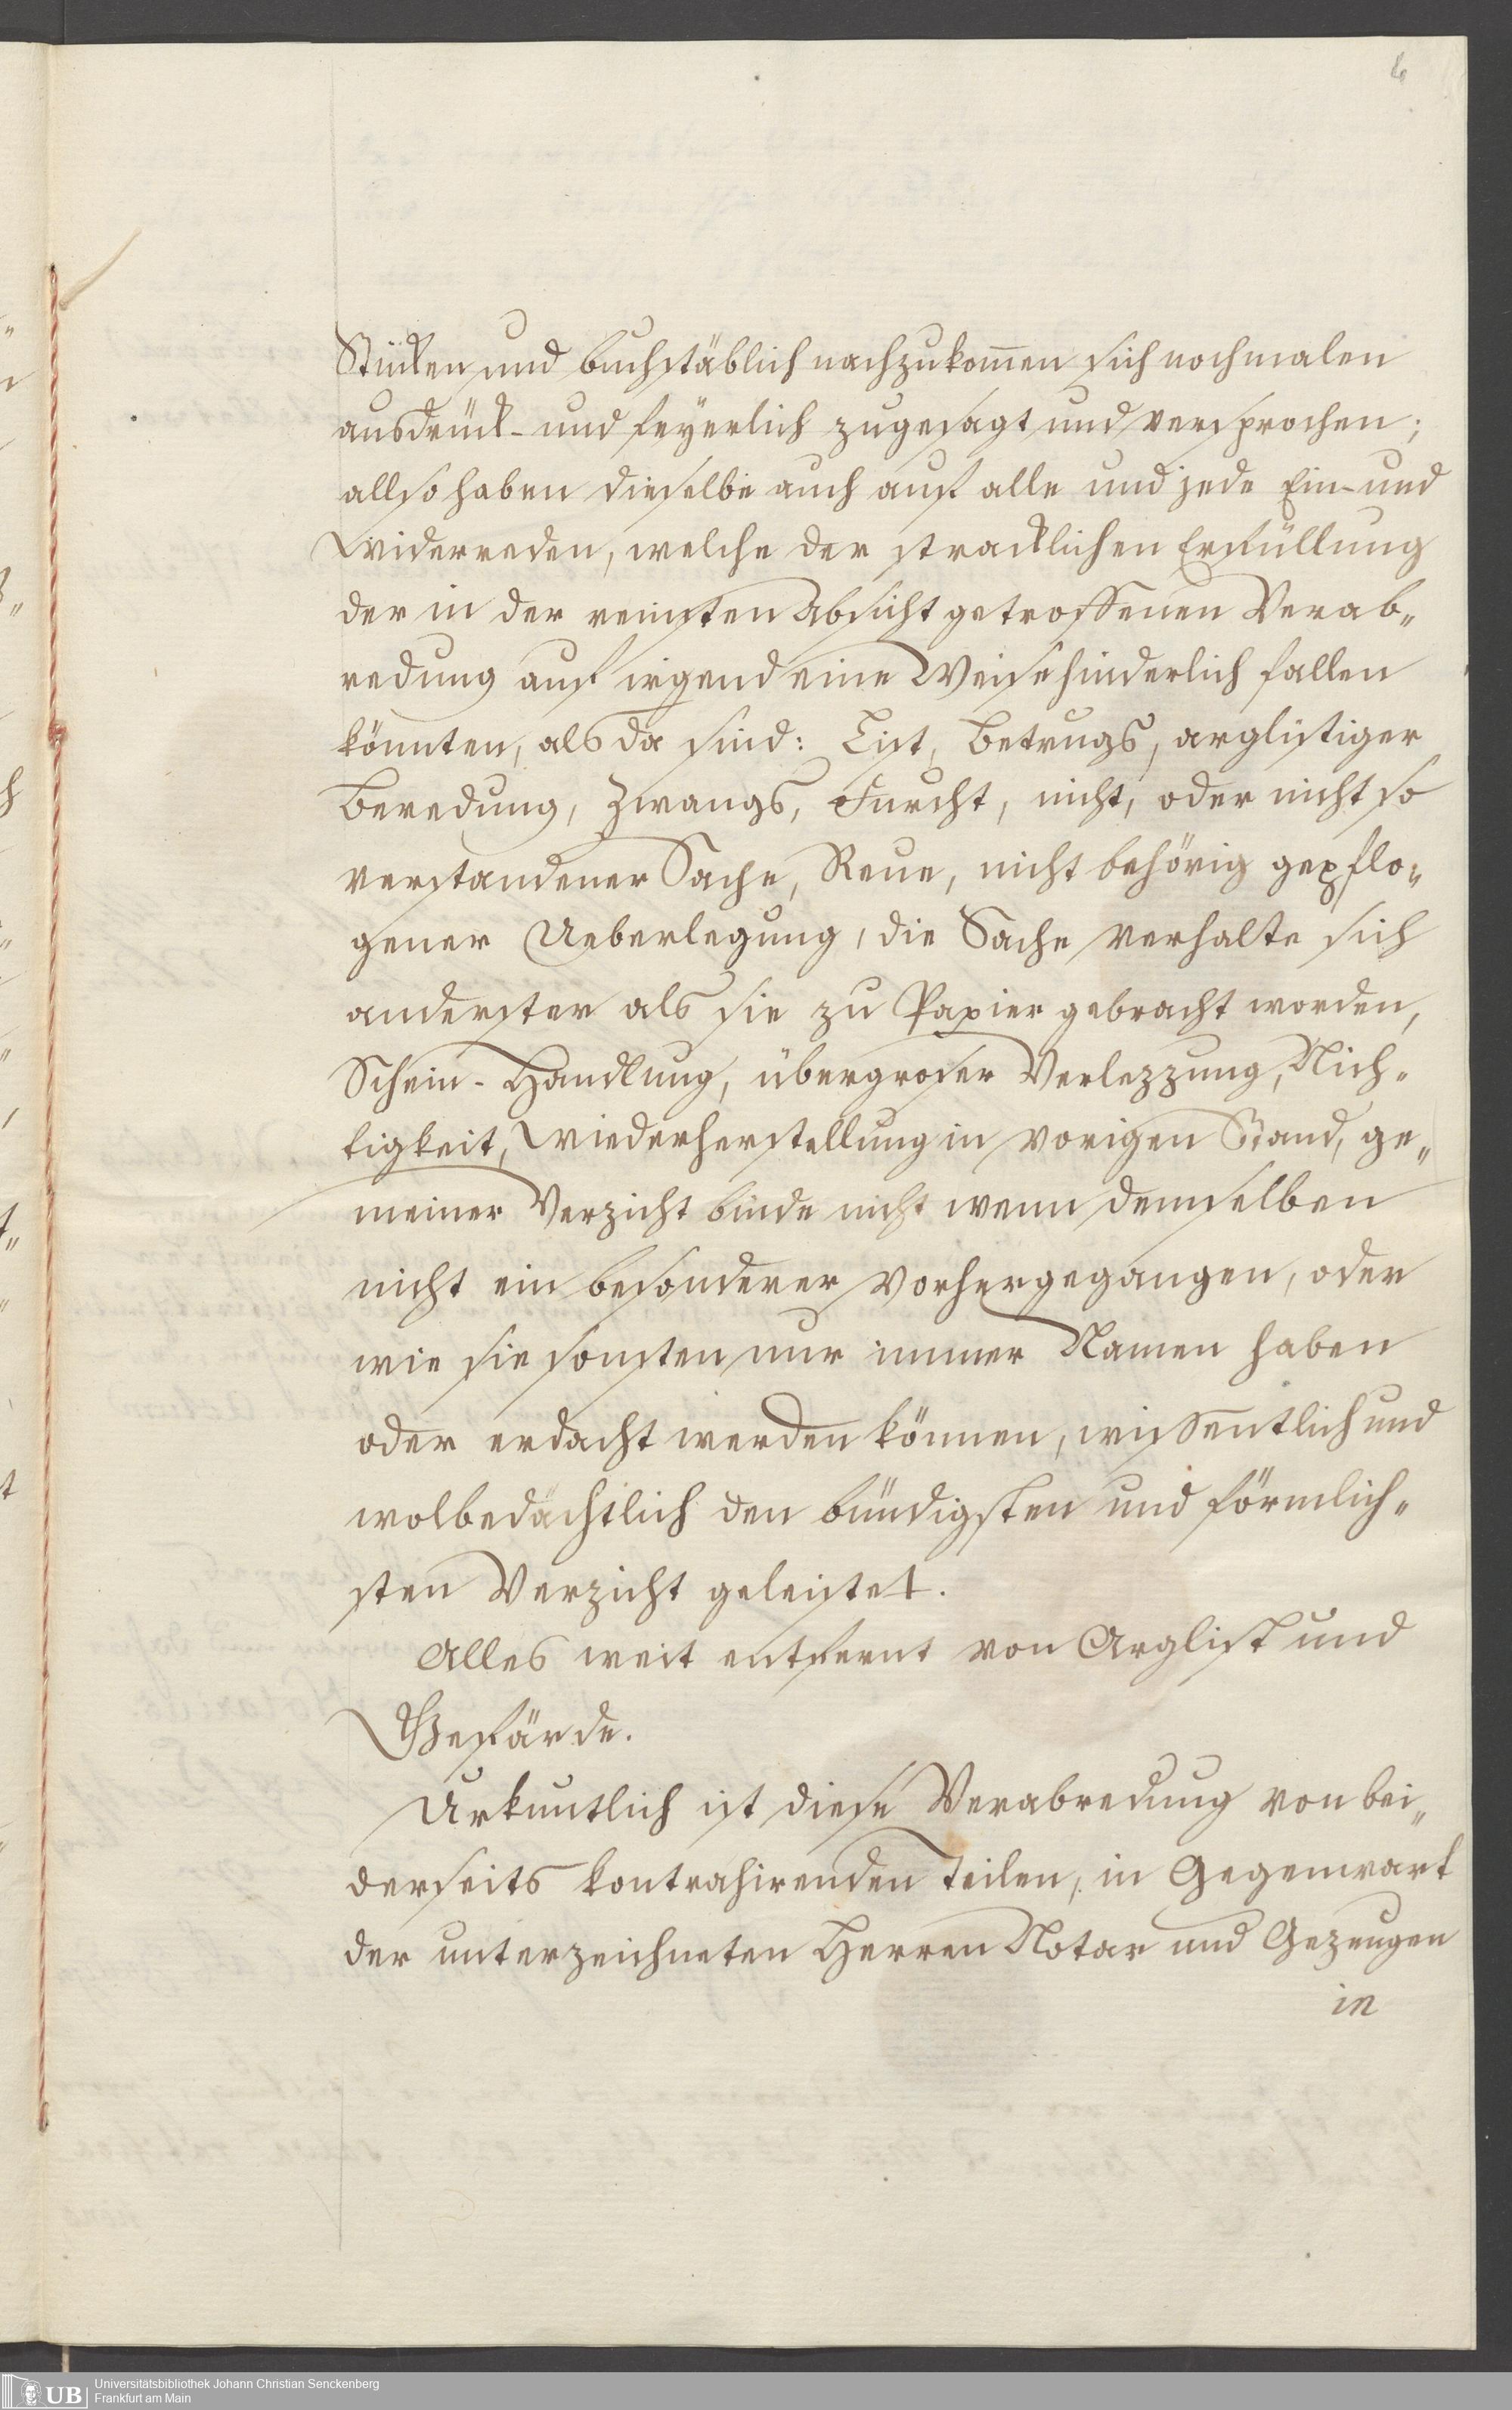 6
Stücken und buchstäblich nachzukom̄en sich nochmalen
ausdrück- und feÿerlich zugesagt und versprochen;
allso haben dieselbe auch auf alle und jede Ein- und
Widerreden, welche der stracklichen Erfüllung
der in der reinsten Absicht getroffenen Verab„
redung auf irgend eine Weise hinderlich fallen
könnten, als da sind: List, Betrugs, arglistiger
Beredung, Zwangs, Furcht, nicht, oder nicht so
verstandener Sache, Reue, nicht behörig gepflo„
gener Ueberlegung, die Sache verhalte sich
anderster als sie zu Papier gebracht worden,
Schein-Handlung, übergroser Verlezzung, Nich„
tigkeit, Wiederherstellung in vorigen Stand, ge„
meiner Verzicht binde nicht wenn demselben
nicht ein besonderer vorhergegangen, oder
wie sie sonsten nur immer Namen haben
oder erdacht werden können, wissentlich und
wolbedächtlich den bündigsten und förmlich„
sten Verzicht geleistet.
Alles weit entfernt von Arglist und
Gefärde.
Urkuntlich ist diese Verabredung von bei„
derseits kontrahirenden Teilen, in Gegenwart
der unterzeichneten Herren Notar und Gezeugen
in
UB
Universitätsbibliothek Johann Christian Senckenberg
Frankfurt am Main